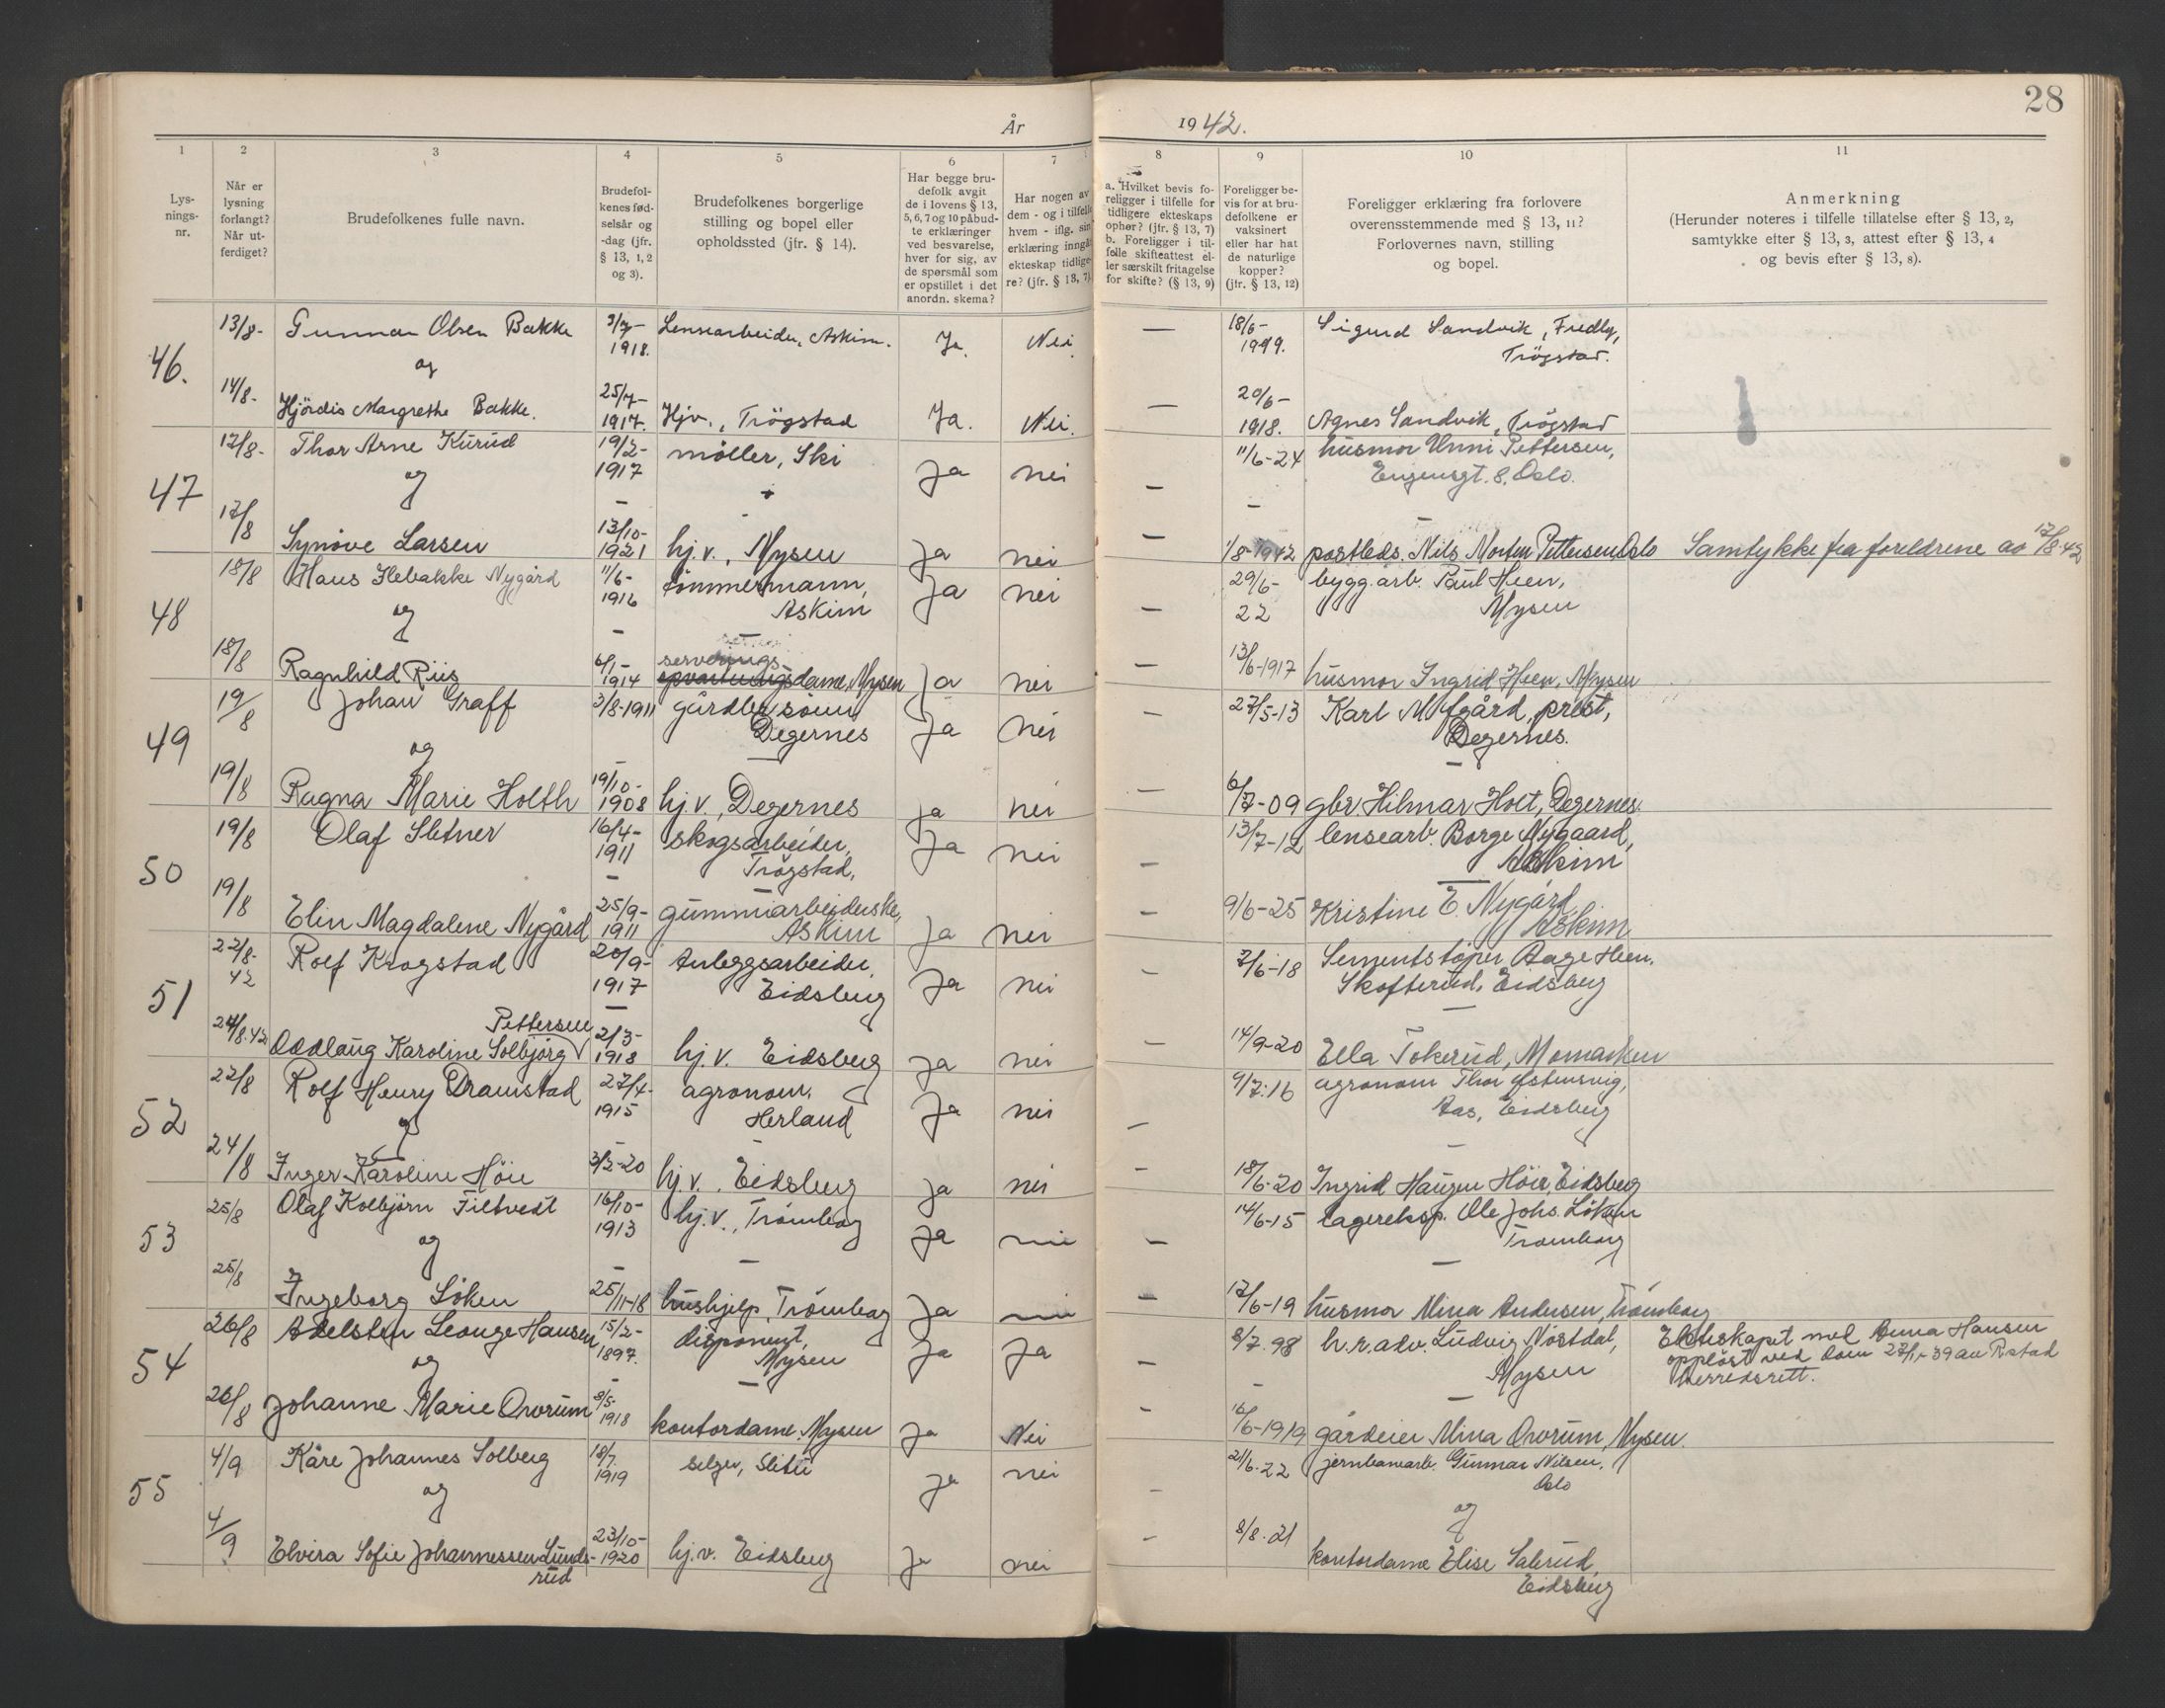 28
År
1942.
1
2
3
4
5
6
7
8
9
10
11
Lys-
nings-
nr.
Når er
lysning
forlangt?
Når ut-
ferdiget?
Brudefolkenes fulle navn.
Brudefol-
kenes fød-
selsår og
-dag (jfr.
§ 13, 1, 2
og 3).
Brudefolkenes borgerlige
stilling og bopel eller
opholdssted (jfr. § 14).
Har begge bru-
defolk avgit
de i lovens § 13,
5, 6, 7 og 10 påbud-
te erklæringer
ved besvarelse,
hver for sig, av
de spørsmål som
er opstillet i det
anordn. skema?
Har nogen av
dem - og i tilfelle
hvem - iflg. sin
erklæring inngåt
ekteskap tidlige-
re? (jfr. § 13, 7)
a. Hvilket bevis fo-
religger i tilfelle for
tidligere ekteskaps
ophør? (jfr. § 13, 7)
b. Foreligger i til-
felle skifteattest el-
ler særskilt fritagelse
for skifte? (§ 13, 9)
Foreligger be-
vis for at bru-
defolkene er
vaksinert
eller har hat
de naturlige
kopper?
(jfr. § 13, 12)
Foreligger erklæring fra forlovere
overensstemmende med § 13, 11?
Forlovernes navn, stilling
og bopel.
Anmerkning
(Herunder noteres i tilfelle tillatelse efter § 13, 2,
samtykke efter § 13, 3, attest efter § 13, 4
og bevis efter § 13, 8).
46.
13/8- Gunnar Olsen Bakke 3/7- 1918. Lensearbeider, Askim. Ja. Nei. — 18/6- 1919. Sigurd Sandvik, Fredly,
Trögstad.
og
14/8- Hjördis Margrethe Bakke. 25/7- 1917. Hjv., Trögstad Ja. Nei. — 20/6- 1918. Agnes Sandvik, Trögstad
47
17/8- Thor Arne Kurud 19/2- 1917 möller, Ski Ja nei — 11/6-24 husmor Unni Pettersen,
Eugensgt. 8, Oslo.
og
17/8 Synöve Larsen 13/10- 1921 hj.v., Mysen Ja nei — 1/8-1942 postbeds. Nils Morten Pettersen Oslo Samtykke fra foreldrene av 17/8-42
48
18/8 Hans Hebakke Nygård 11/6- 1916 tömmermann,
Askim Ja nei — 29/6- 22 bygg.arb. Paul Heen,
Mysen
og
18/8 Ragnhild Riis 6/1- 1914 serverings-
dame, Mysen Ja nei — 13/6-1917 husmor Ingrid Heen, Mysen
49
19/8 Johan Graff 3/8-1911 gårdbr.sönn,
Degernes Ja nei — 27/5-13 Karl Mofgård, prest,
Degernes.
og
19/8 Ragna Marie Holth 19/10- 1908 hj.v., Degernes ja nei — 6/7-09 gbr. Hilmar Holt, Degernes.
50
19/8 Olaf Sletner 16/4- 1911 skogsarbeider,
Trögstad, Ja nei — 13/7-12 lensearb. Borge Nygaard,
Askim
19/8 Elin Magdalene Nygård 25/9- 1911 gummiarbeiderske,
Askim Ja nei — 9/6-25 Kristine E. Nygård
Askim
51
22/8- 42 Rolf Krogstad 20/9- 1917 Anleggsarbeider,
Eidsberg Ja nei — 7/6-18 Sementstöper Aage Heen,
Skofterud, Eidsberg
Pettersen
24/8.42 Oddlaug Karoline Solbjörg 2/3- 1918 hj.v. Eidsberg ja nei — 14/9-20 Ella Tokerud, Momarken
52
22/8 Rolf Henry Dramstad 27/4- 1915 agronom,
Herland Ja nei — 9/7.16 agronom Thor Östensvig,
Aas, Eidsberg
og
24/8 Inger Karoline Höie 3/2-20 hj.v. Eidsberg ja nei — 18/6-20 Ingrid Haugen Höie, Eidsberg
53
25/8 Olaf Kolbjörn Filtvedt 16/10- 1913 hj.v., Trömborg Ja nei — 14/6-15 lagereksp. Ole Johs. Löken
Tromborg
og
25/8 Ingeborg Löken 25/11-18 hushjelp, Trömborg Ja nei — 17/6-19 husmor Mina Andersen, Trömborg
54
26/8 Adelsten Leonge Hansen 15/2- 1897. disponent,
Mysen Ja Ja — 8/7.98 h.r.adv. Ludvig Nöstdal,
Mysen
Ekteskapet med Anna Hansen
opplöst ved dom 27/1-39 av Rstad
herredsrett.
og
26/8 Johanne Marie Ovorum 8/5- 1918 kontordame, Mysen Ja Nei — 16/6-1919 gårdeier Mina Ovorum, Mysen.
55
4/9 Kåre Johannes Solberg 18/7. 1919 selger, Slitu ja nei — 21/6.22 jernbanearb. Gunnar Nilsen,
Oslo
og og
4/9 Elvira Sofie Johannessen Lunds-
rud 23/10- 1920 hj.v. Eidsberg Ja nei — 8/8.21 kontordame Elise Salerud,
Eidsberg